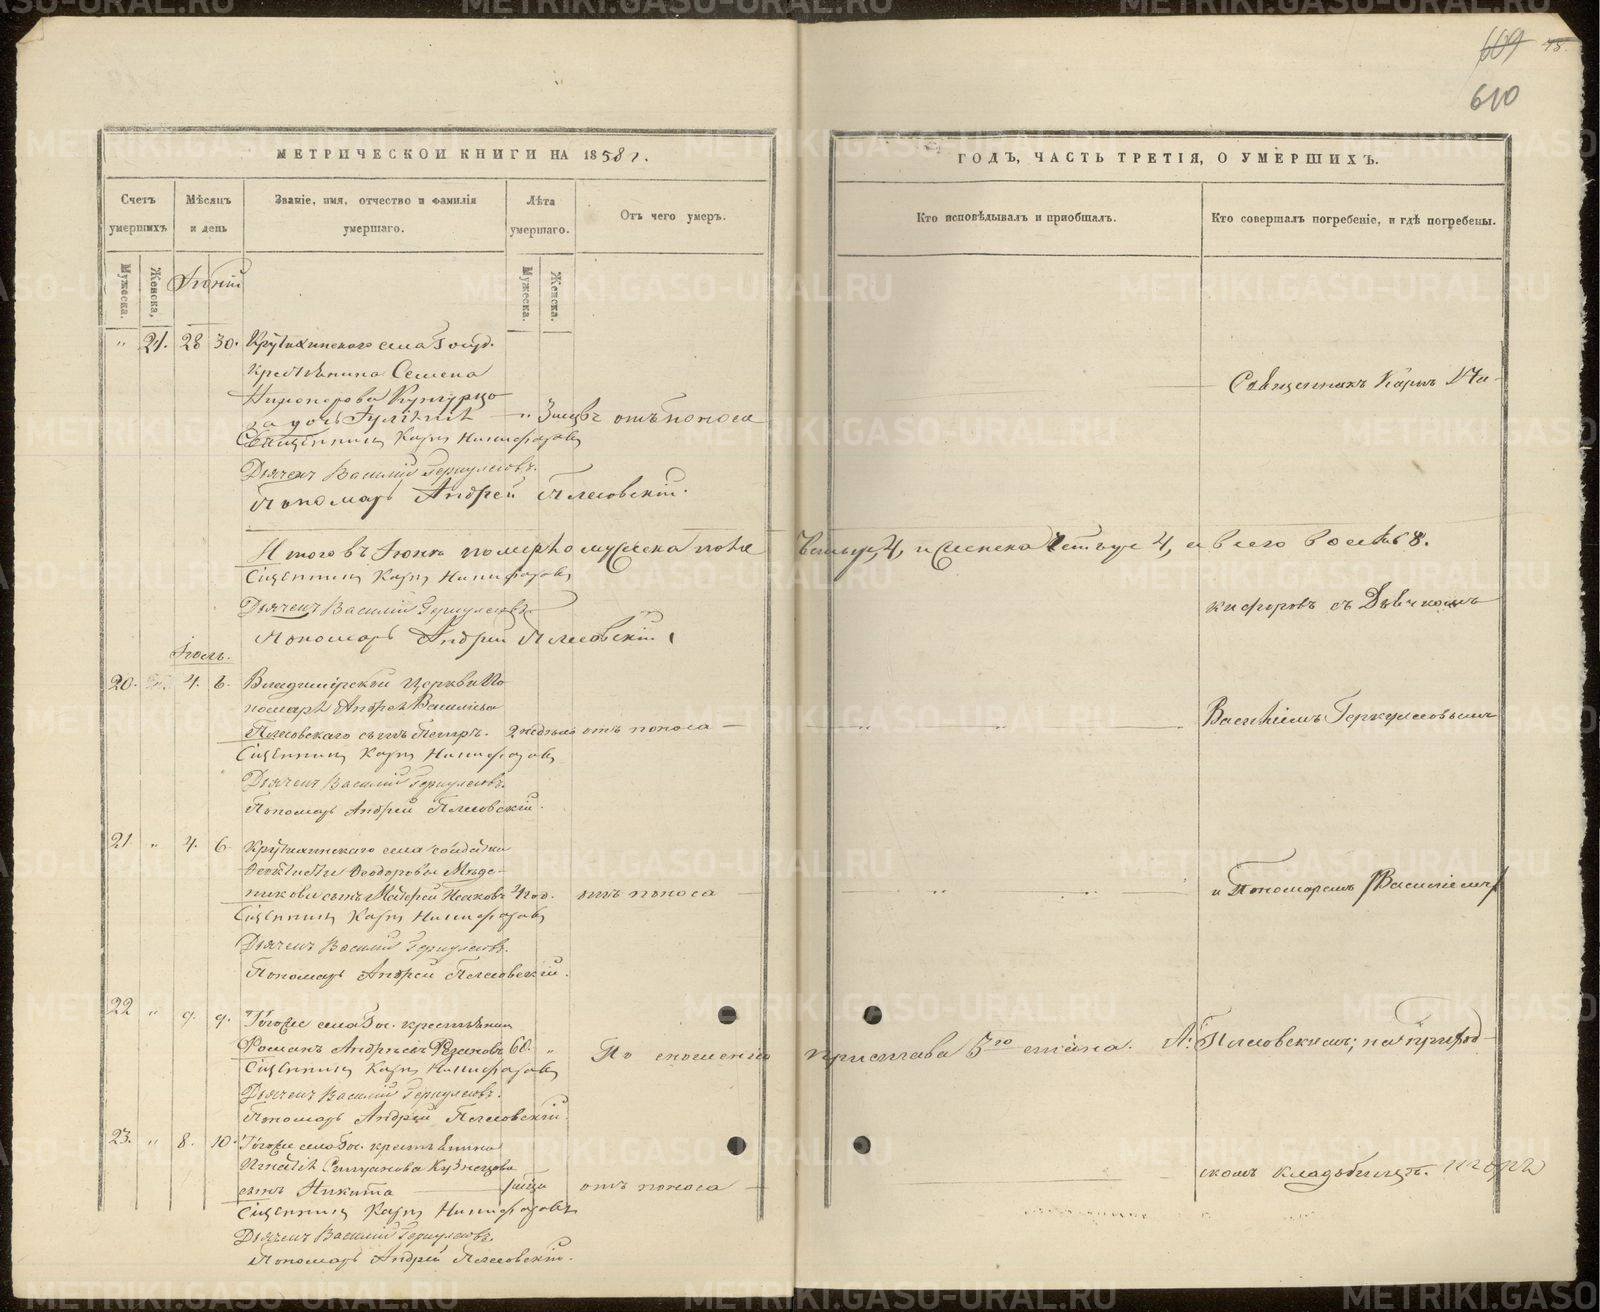 609 75.
610
МЕТРИЧЕСКОИ КНИГИ НА 1858 г.
ГОДЪ, ЧАСТЬ ТРЕТІЯ, О УМЕРШИХЪ.
Счетъ умершихъ
Мѣсяцъ и день
Званіе, имя, отчество и фамилія умершаго.
Лѣта умершаго.
Отъ чего умеръ.
Кто исповѣдывалъ и пріобщалъ.
Кто совершалъ погребеніе, и гдѣ погребены.
Мужеска. Женска. Мужеска. Женска.
Іюній
" 21. 28 30. Крутихинскаго села Госуд.
крестьянина Семена
дочь " 3 мѣсц отъ поноса
Священникъ Карпъ Ни-
Священникъ Карпъ Никифоровъ
Дьячекъ Василій Геркулесовъ.
Пономарь Андрей Плесовскій.
Итого въ Іюнѣ померло мужеска пола четыре 4, и женска четыре 4, а всего восемь 8.
Священникъ Карпъ Никифоровъ
Дьячекъ Василій Геркулесовъ
Пономарь Андрей Плесовскій
кифоровъ съ Дьячкомъ
Іюль.
20. 4. 6. Владимірской Церкви По-
номаря Андрея Васильева
Плесовскаго сынъ Петръ. 2 недѣль отъ поноса
Василіемъ Геркулесовымъ
Священникъ Карпъ Никифоровъ
Дьячекъ Василій Геркулесовъ.
Пономарь Андрей Плесовскій.
21 " 4. 6. Крутихинскаго села солдатки
Ѳеодоровы
сынъ 4 год. отъ поноса
и Пономаремъ
Священникъ Карпъ Никифоровъ
Дьячекъ Василій Геркулесовъ.
Пономарь Андрей Плесовскій.
22 " 9. 9. Тогоже села Гос. крестьянин
Романъ Андреевъ 60. "
По сношенію пристава 5го стана.
А. Плесовскимъ; на приход-
Священникъ Карпъ Никифоровъ
Дьячекъ Василій Геркулесовъ.
Пономарь Андрей Плесовскій
23. " 8. 10. Тогоже села Гос. крестьянина
Игнатія Кузнецова
сынъ Никита отъ поноса
скомъ кладбищѣ.
Священникъ Карпъ Никифоровъ
Дьячекъ Василій Геркулесовъ
Пономарь Андрей Плесовскій.
METRIKI.GASO-URAL.RU